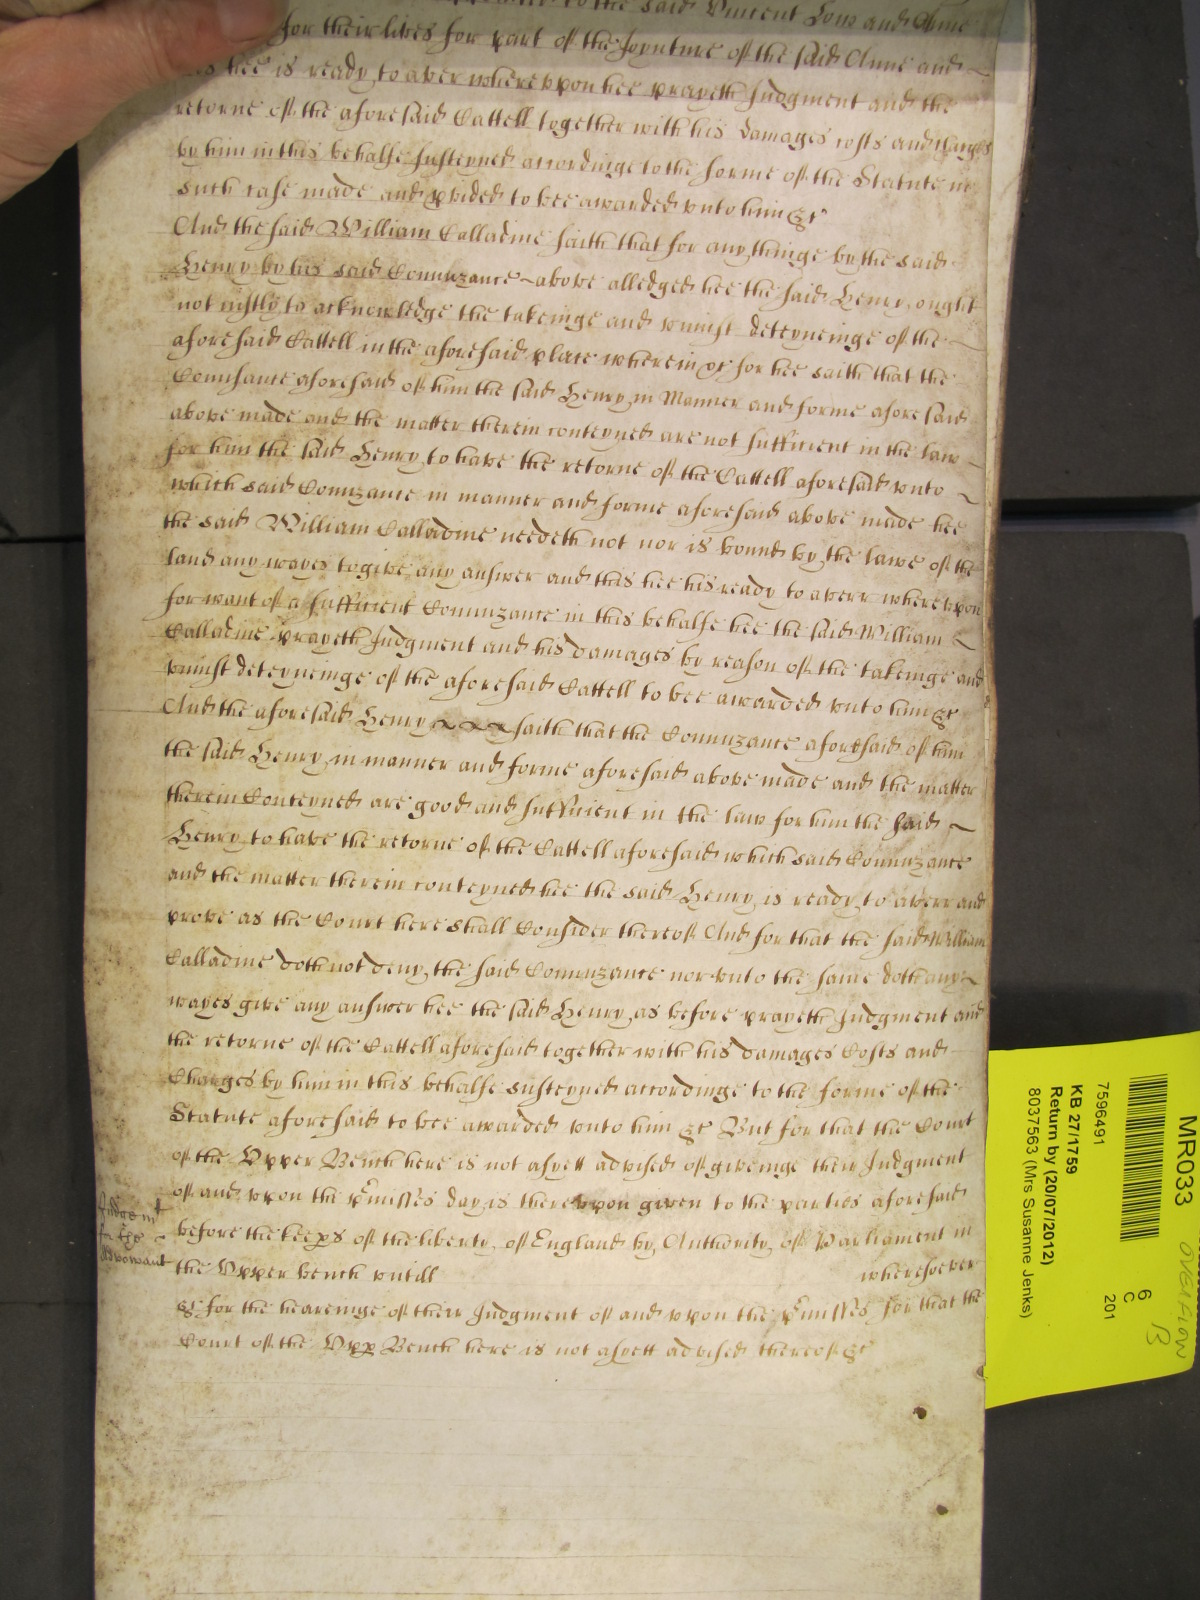 to the said Vincent Low and Anne
for their lives for part of the Joynture of the said Anne and
hee is ready to aver whereuppon hee prayeth Judgment and the
retorne of the aforesaid Cattell together with his damages costs and charges
by him in this behalfe susteyned accordinge to the forme of the Statute in
such case made and pvided to bee awarded unto him &c
And the said William Calladine saith that for any thinge by the said
Henry by his said Conuzance above alledged hee the said Henry ought
not iustly to acknowledge the takeinge and uniust deteyneinge of the
aforesaid Cattell in the aforesaid place wherein &c for hee saith that the
Conusance aforesaid of him the said Henry in Manner and forme aforesaid
above made and the matter therein conteyned are not sufficient in the law
for him the said Henry to have the retorne of the Cattell aforesaid unto
which said Conuzance in manner and forme aforesaid above made hee
the said William Calladine needeth not nor is bound by the lawe of the
land any wayes to give any answer and this hee his ready to averr whereuppon
for want of a sufficient Conuzance in this behalfe hee the said William
Calladine prayeth Judgment and his damages by reason of the takeinge and
uniust deteyneinge of the aforesaid Cattell to bee awarded unto him &c
And the aforesaid Henry saith that the Conuzance aforesaid of him
the said Henry in manner and forme aforesaid above made and the matter
therein Conteyned are good and sufficient in the law for him the said
Henry to have the retorne of the Cattell aforesaid which said Conuzance
and the matter therein conteyned hee the said Henry is ready to averr and
prove as the Court here shall Consider thereof And for that the said William
Calladine doth not deny the said Conuzance nor unto the same doth any
wayes give any answer hee the said Henry as before prayeth Judgment and
the retorne of the Cattell aforesaid together with his damages Costs and
Charges by him in this behalfe susteyned accordinge to the forme of the
Statute aforesaid to bee awarded unto him &c But for that the Court
of the Upper Bench here is not as yett advised of giveinge their Judgment
of and uppon the pmisses day is thereuppon given to the parties aforesaid
before the keeps of the liberty of England by Authority of Parliament in
the Upper bench untill wheresoever
&c for the heareinge of their Judgment of and uppon the pmisses for that the
Court of the Upp Bench here is not as yett advised thereof &c
Judgmt
for the
Advowant
MR033
OVERFLOW
B
6
C
201
7596491
KB 27/1759
Return by (20/07/2012)
8037563 (Mrs Susanne Jenks)